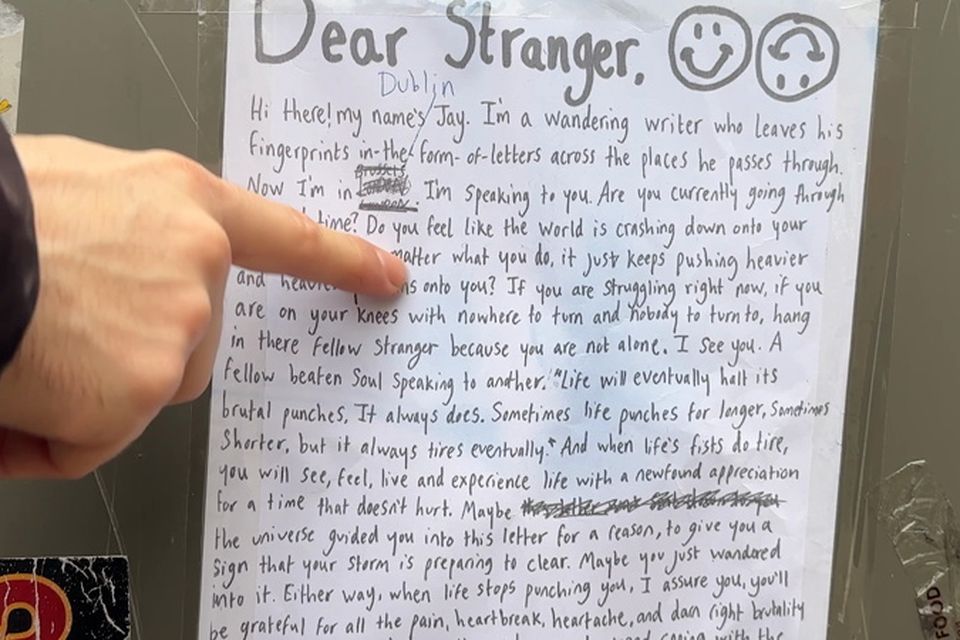 Dear Stranger,
Dublin
Hi there! my name's Jay. I'm a wandering writer who leaves his
fingerprints in-the-form-of-letters across the places he passes through.
Brussels
Now I'm in London. I'm speaking to you. Are you currently going through
time? Do you feel like the world is crashing down onto your
matter what you do, it just keeps pushing heavier
and onto you? If you are struggling right now, if you
are on your knees with nowhere to turn and nobody to turn to, hang
in there fellow stranger because you are not alone. I see you. A
fellow beaten soul speaking to another. "Life will eventually halt its
brutal punches, It always does. Sometimes life punches for longer, Sometimes
Shorter, but it always tires eventually." And when life's fists do tire,
you will see, feel, live and experience life with a newfound appreciation
for a time that doesn't hurt. Maybe
the universe guided you into this letter for a reason, to give you a
sign that your storm is preparing to clear. Maybe you just wandered
into it. Either way, when life stops punching you, I assure you, you'll
be grateful for all the pain, heartbreak, heartache, and darn right brutality
FOOD